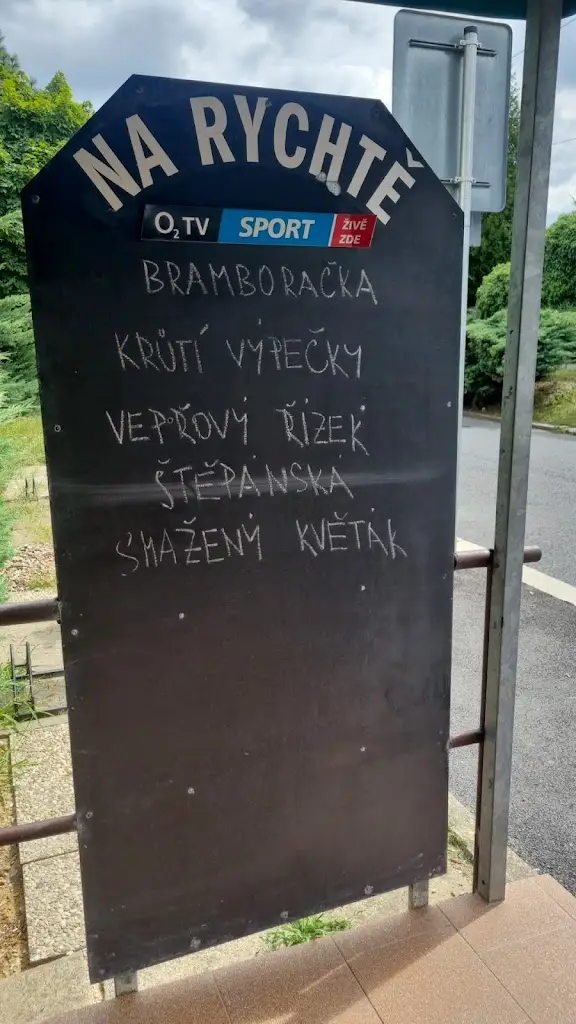 NA RYCHTĚ
O2 TV SPORT ŽIVĚ ZDE
BRAMBORAČKA
KRŮTÍ VÝPEČKY
VEPŘOVÝ ŘÍZEK
ŠTĚPÁNSKÁ
SMAŽENÝ KVĚTÁK